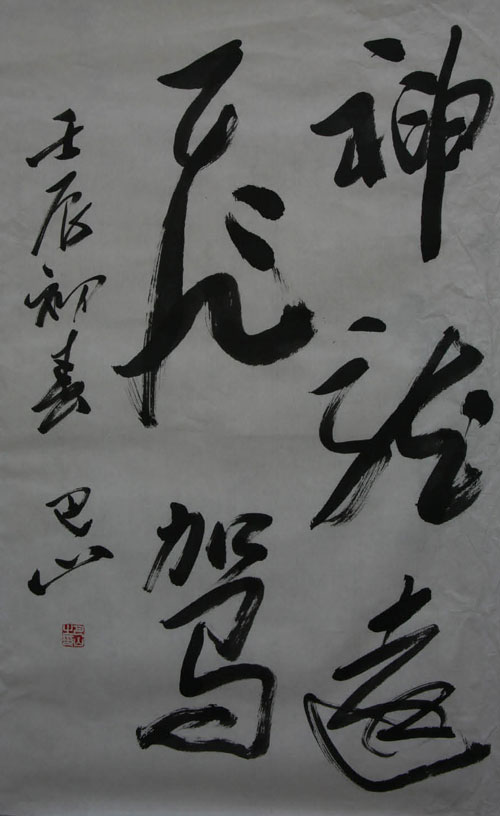 神龙遠
飛驾
壬辰初春 巴山